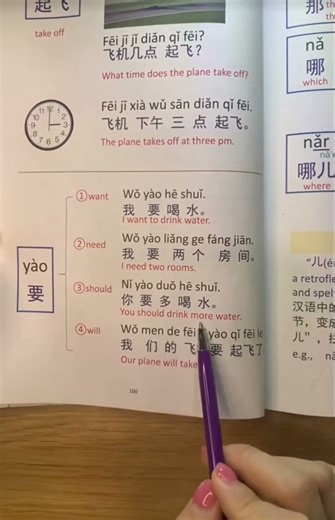 起飞
take off
Fēi jī jǐ diǎn qǐ fēi?
飞机几点 起飞?
What time does the plane take off?
Fēi jī xià wǔ sān diǎn qǐ fēi.
飞机 下午 三 点 起飞。
The plane takes off at three pm.
yào
要
①want
Wǒ yào hē shuǐ.
我 要 喝 水。
I want to drink water.
②need
Wǒ yào liǎng ge fáng jiān.
我 要 两 个 房 间。
I need two rooms.
③should
Nǐ yào duō hē shuǐ.
你 要 多 喝 水。
You should drink more water.
④will
Wǒ men de fēi yào qǐ fēi le
我 们 的 飞 要 起飞了
Our plane will take
100
那
nǎ
哪
which
nǎr
哪儿
where
"儿(
a retrofle
and spel
汉语中的
节，变成
儿"，
e.g.,